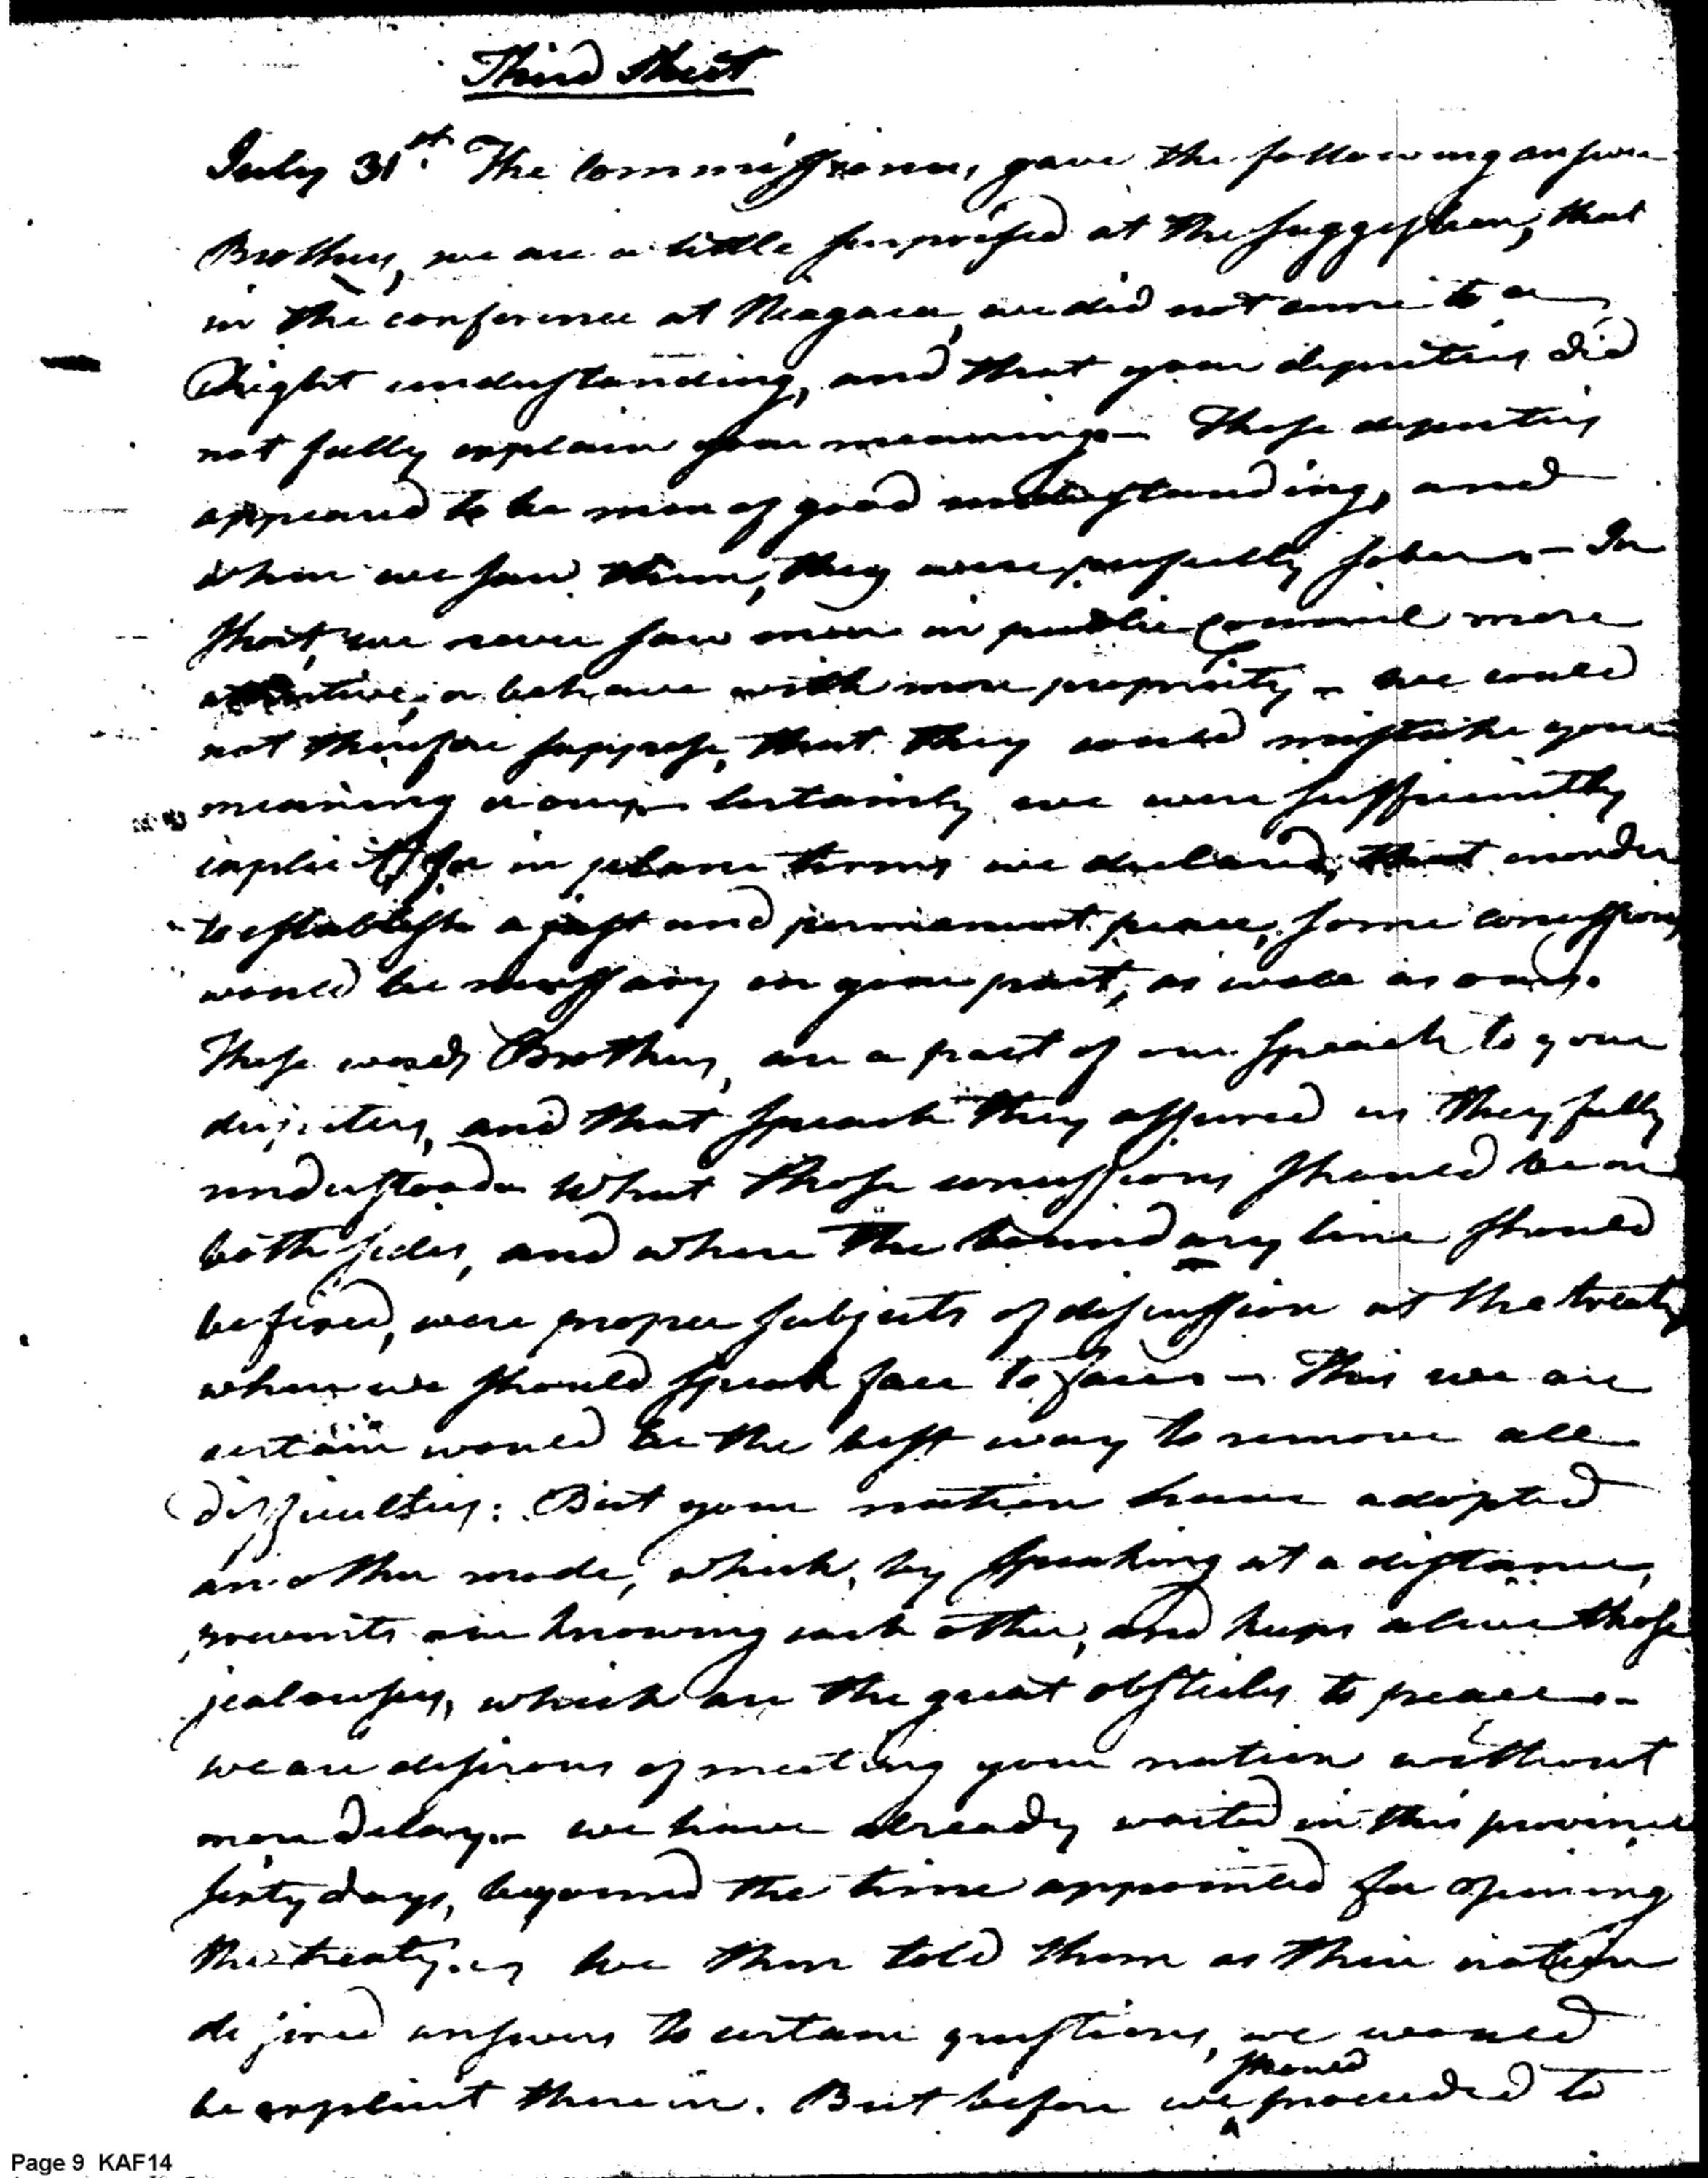 Third Sheet
July 31st. The Commissioners, gave the following answer
Brothers, we are a little surprised at the suggestion, that
in the conference at Niagara, we did not come to a
Right understanding, and that your deputies did
not fully explain your meaning - These deputies
appeared to be men of good understanding, and
when we saw them, they were perfectly sober - In
short, we never saw men in public Council more
attentive, or behave with more propriety - we could
not therefore suppose, that they could mistake your
meaning or ours - Certainly we were sufficiently
explicit, for in plane terms we declared, that in order
to establish a just and permanent peace, some concessions
would be necessary on your part, as well as ours.
These words Brothers, are a part of our speech to your
deputies, and that speach they assured us they fully
understood - What those concessions should be on
both sides, and where the boundary line should
be fixed, were proper subjects of discussion at the treaty
when we should speak face to face - This we are
certain would be the best way to remove all
difficulties: But your nation have adopted
another mode, which, by speaking at a distance,
prevents our knowing each other, and keeps alive those
jealousies, which are the great obstacles to peace -
we are desirous of meeting your nation without
more delay - we have already waited in this province
sixty days, beyound the time appointed for opening
the treaty. We then told them as their nation
desired answers to certain questions, we would
be explicit therein. But before we should proceeded to
Page 9 KAF14